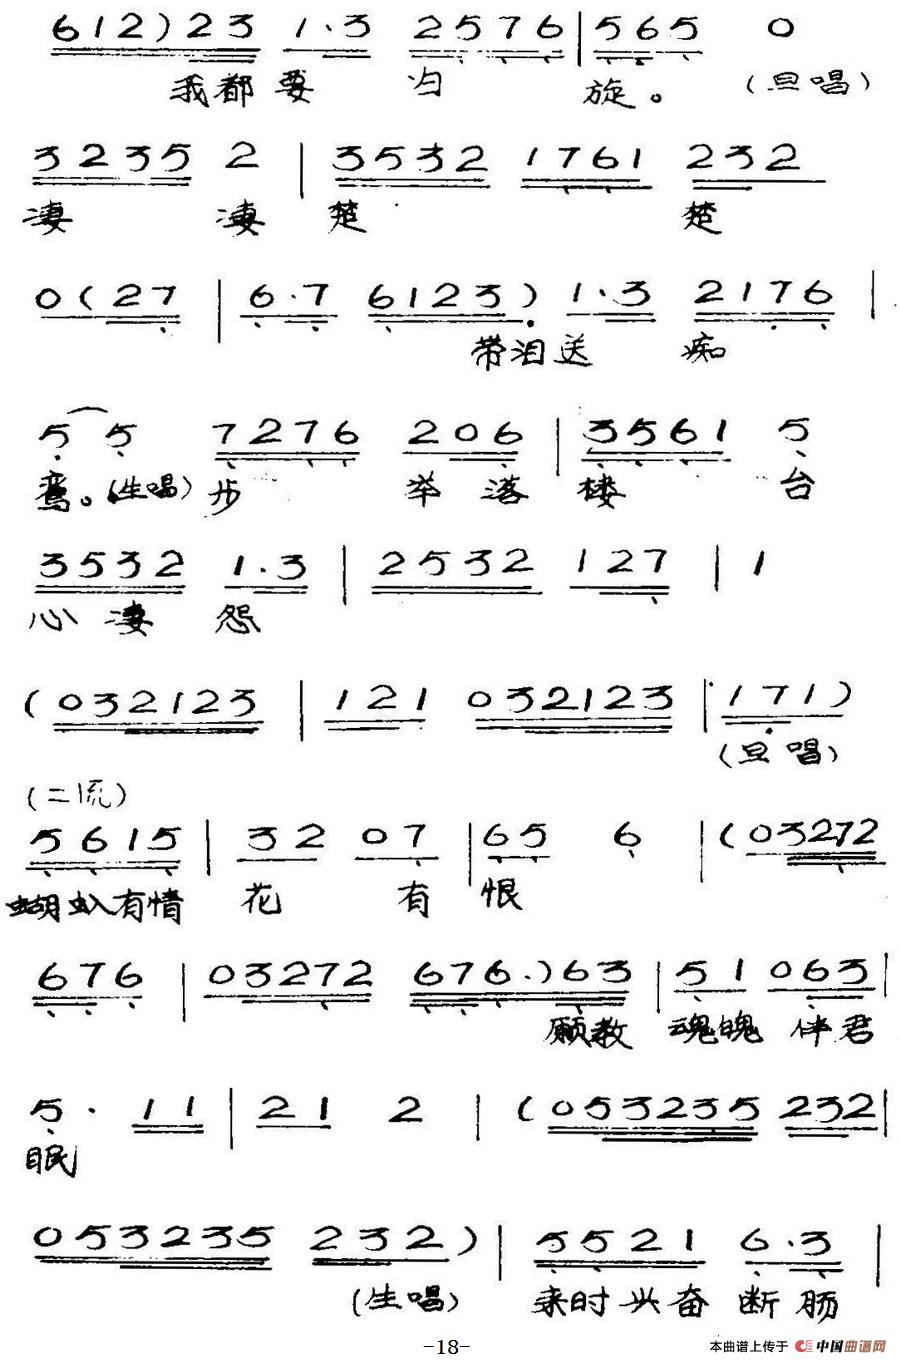 612) 23 1·3 2576 | 565 0
我都要 归 旋。 (旦唱)
3235 2 | 3532 1761 232
凄 凄 楚 楚
0 (27 | 6·7 6123) 1·3 2176 |
带泪送 痴
5 5 7276 206 | 3561 5
鸾。(生唱) 步 举 落 楼 台
3532 1·3 | 2532 127 | 1
心凄 怨
(032123 | 121 032123 | 171)
(旦唱)
(二流)
5615 | 32 07 | 65 6 | (03272
蝴虯有情 花 有 恨
676 | 03272 676·) 63 | 51 063 |
愿教 魂魄 伴君
5· 11 | 21 2 | (053235 232 |
眠
053235 232) | 5521 6·3 |
(生唱) 来时兴奋 断肠
-18-
本曲谱上传于 中国曲谱网